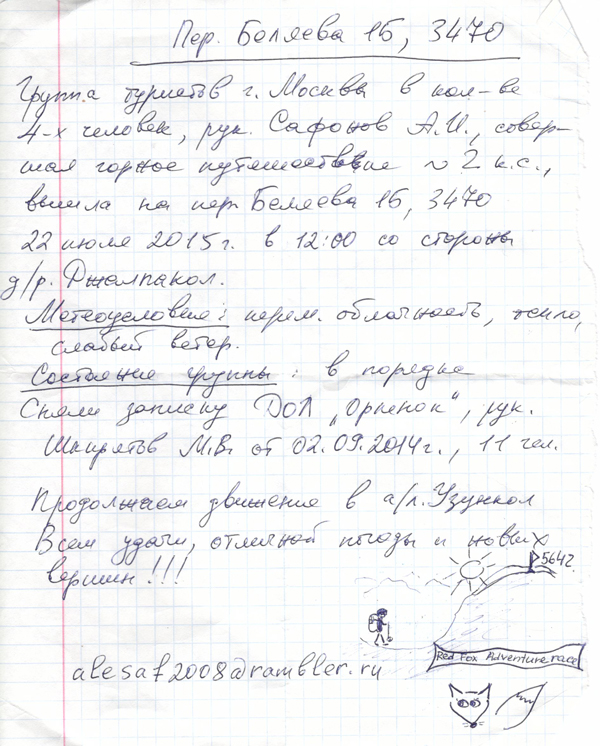 Пер. Беляева 1Б, 3470
Группа туристов г. Москва в кол-ве
4-х человек, рук. Сафонов А.И., совер-
шая горное путешествие ~ 2 к.с.,
вышла на пер Беляева 1Б, 3470
22 июля 2015 г. в 12:00 со стороны
д/р. Джалпакол.
Метеоусловия: перем. облачность, тепло,
слабый ветер.
Состояние группы: в порядке
Сняли записку ДОЛ "Орленок", рук.
Шкирятов М.В. от 02.09.2014г., 11 чел.
Продолжаем движение в а/л. Узункол
Всем удачи, отличной погоды и новых
вершин!!!
5642
Red Fox Adventure race
alesaf2008@rambler.ru